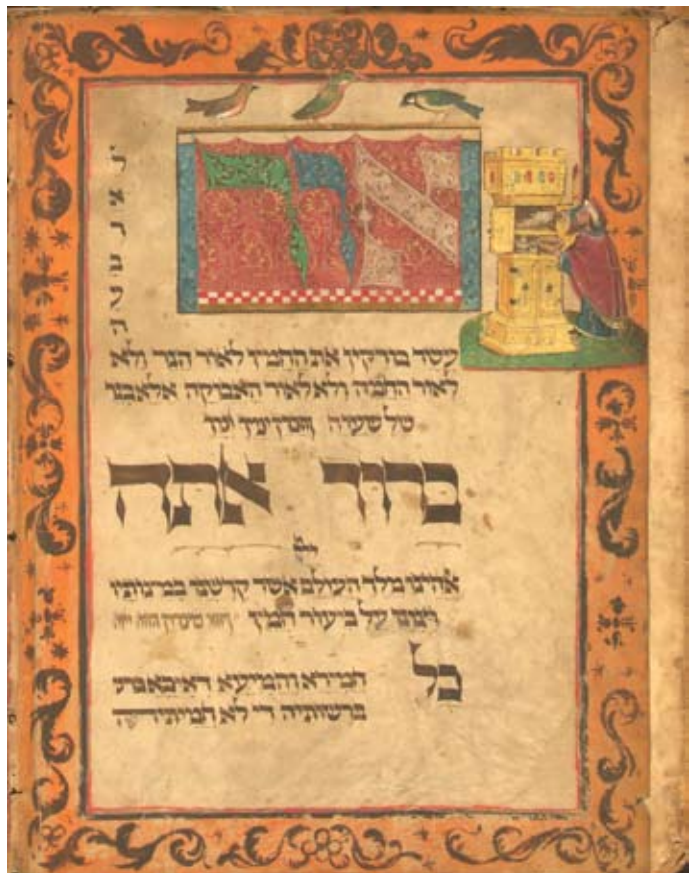 אור
לארבעה
עשר בודקין את החמץ לאור הנר ולא
לאור החמה ולא לאור האבוקה אלא בנר
של שעוה
ברוך אתה
יי
אלהינו מלך העולם אשר קדשנו במצותיו
וצונו על ביעור חמץ
כל חמירא וחמיעא דאיכא
די לא חמיתיה